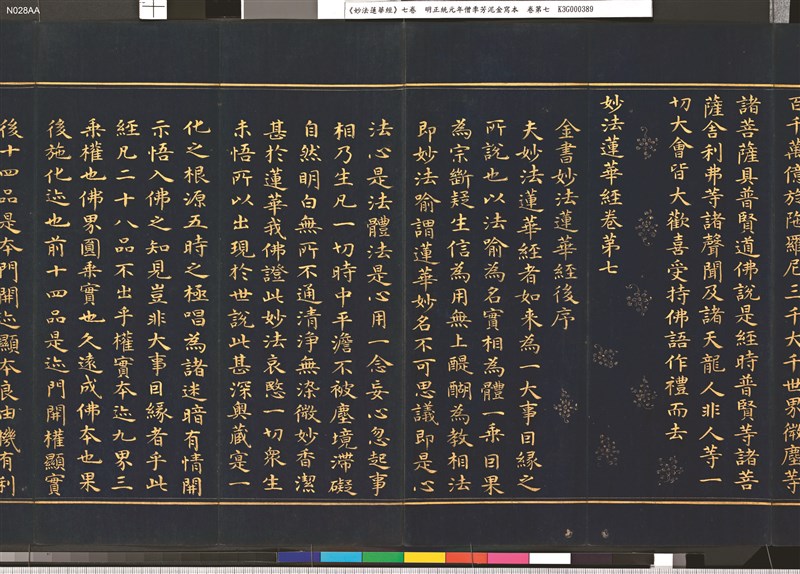 N028AA
《妙法蓮華經》七卷 明正統元年僧季芳泥金寫本 卷第七 K3G000389
百千萬億旋陁羅尼三千大千世界微塵等
諸菩薩具普賢道佛說是經時普賢等諸菩
薩舍利弗等諸聲聞及諸天龍人非人等一
切大會皆大歡喜受持佛語作禮而去
妙法蓮華經卷第七
金書妙法蓮華經後序
夫妙法蓮華經者如来為一大事因緣之
所說也以法喻為名實相為體一乗因果
為宗斷疑生信為用無上醍醐為教相法
即妙法喻謂蓮華妙名不可思議即是心
法心是法體法是心用一念妄心忽起事
相乃生凡一切時中平澹不被塵境滯礙
自然明白無所不通清淨無染微妙香潔
甚於蓮華我佛證此妙法哀愍一切衆生
未悟所以出現於世說此甚深奧藏寔一
化之根源五時之極唱為諸迷暗有情開
示悟入佛之知見豈非大事因緣者乎此
經凡二十八品不出乎權實本迹九界三
乗權也佛界圓乗實也久遠成佛本也果
後施化迹也前十四品是迹門開權顯實
後十四品是本門開迹顯本良由機有利